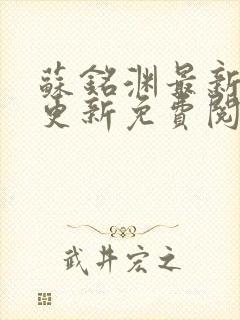 蘇銘淵最新
更新免費閱
武井宏之